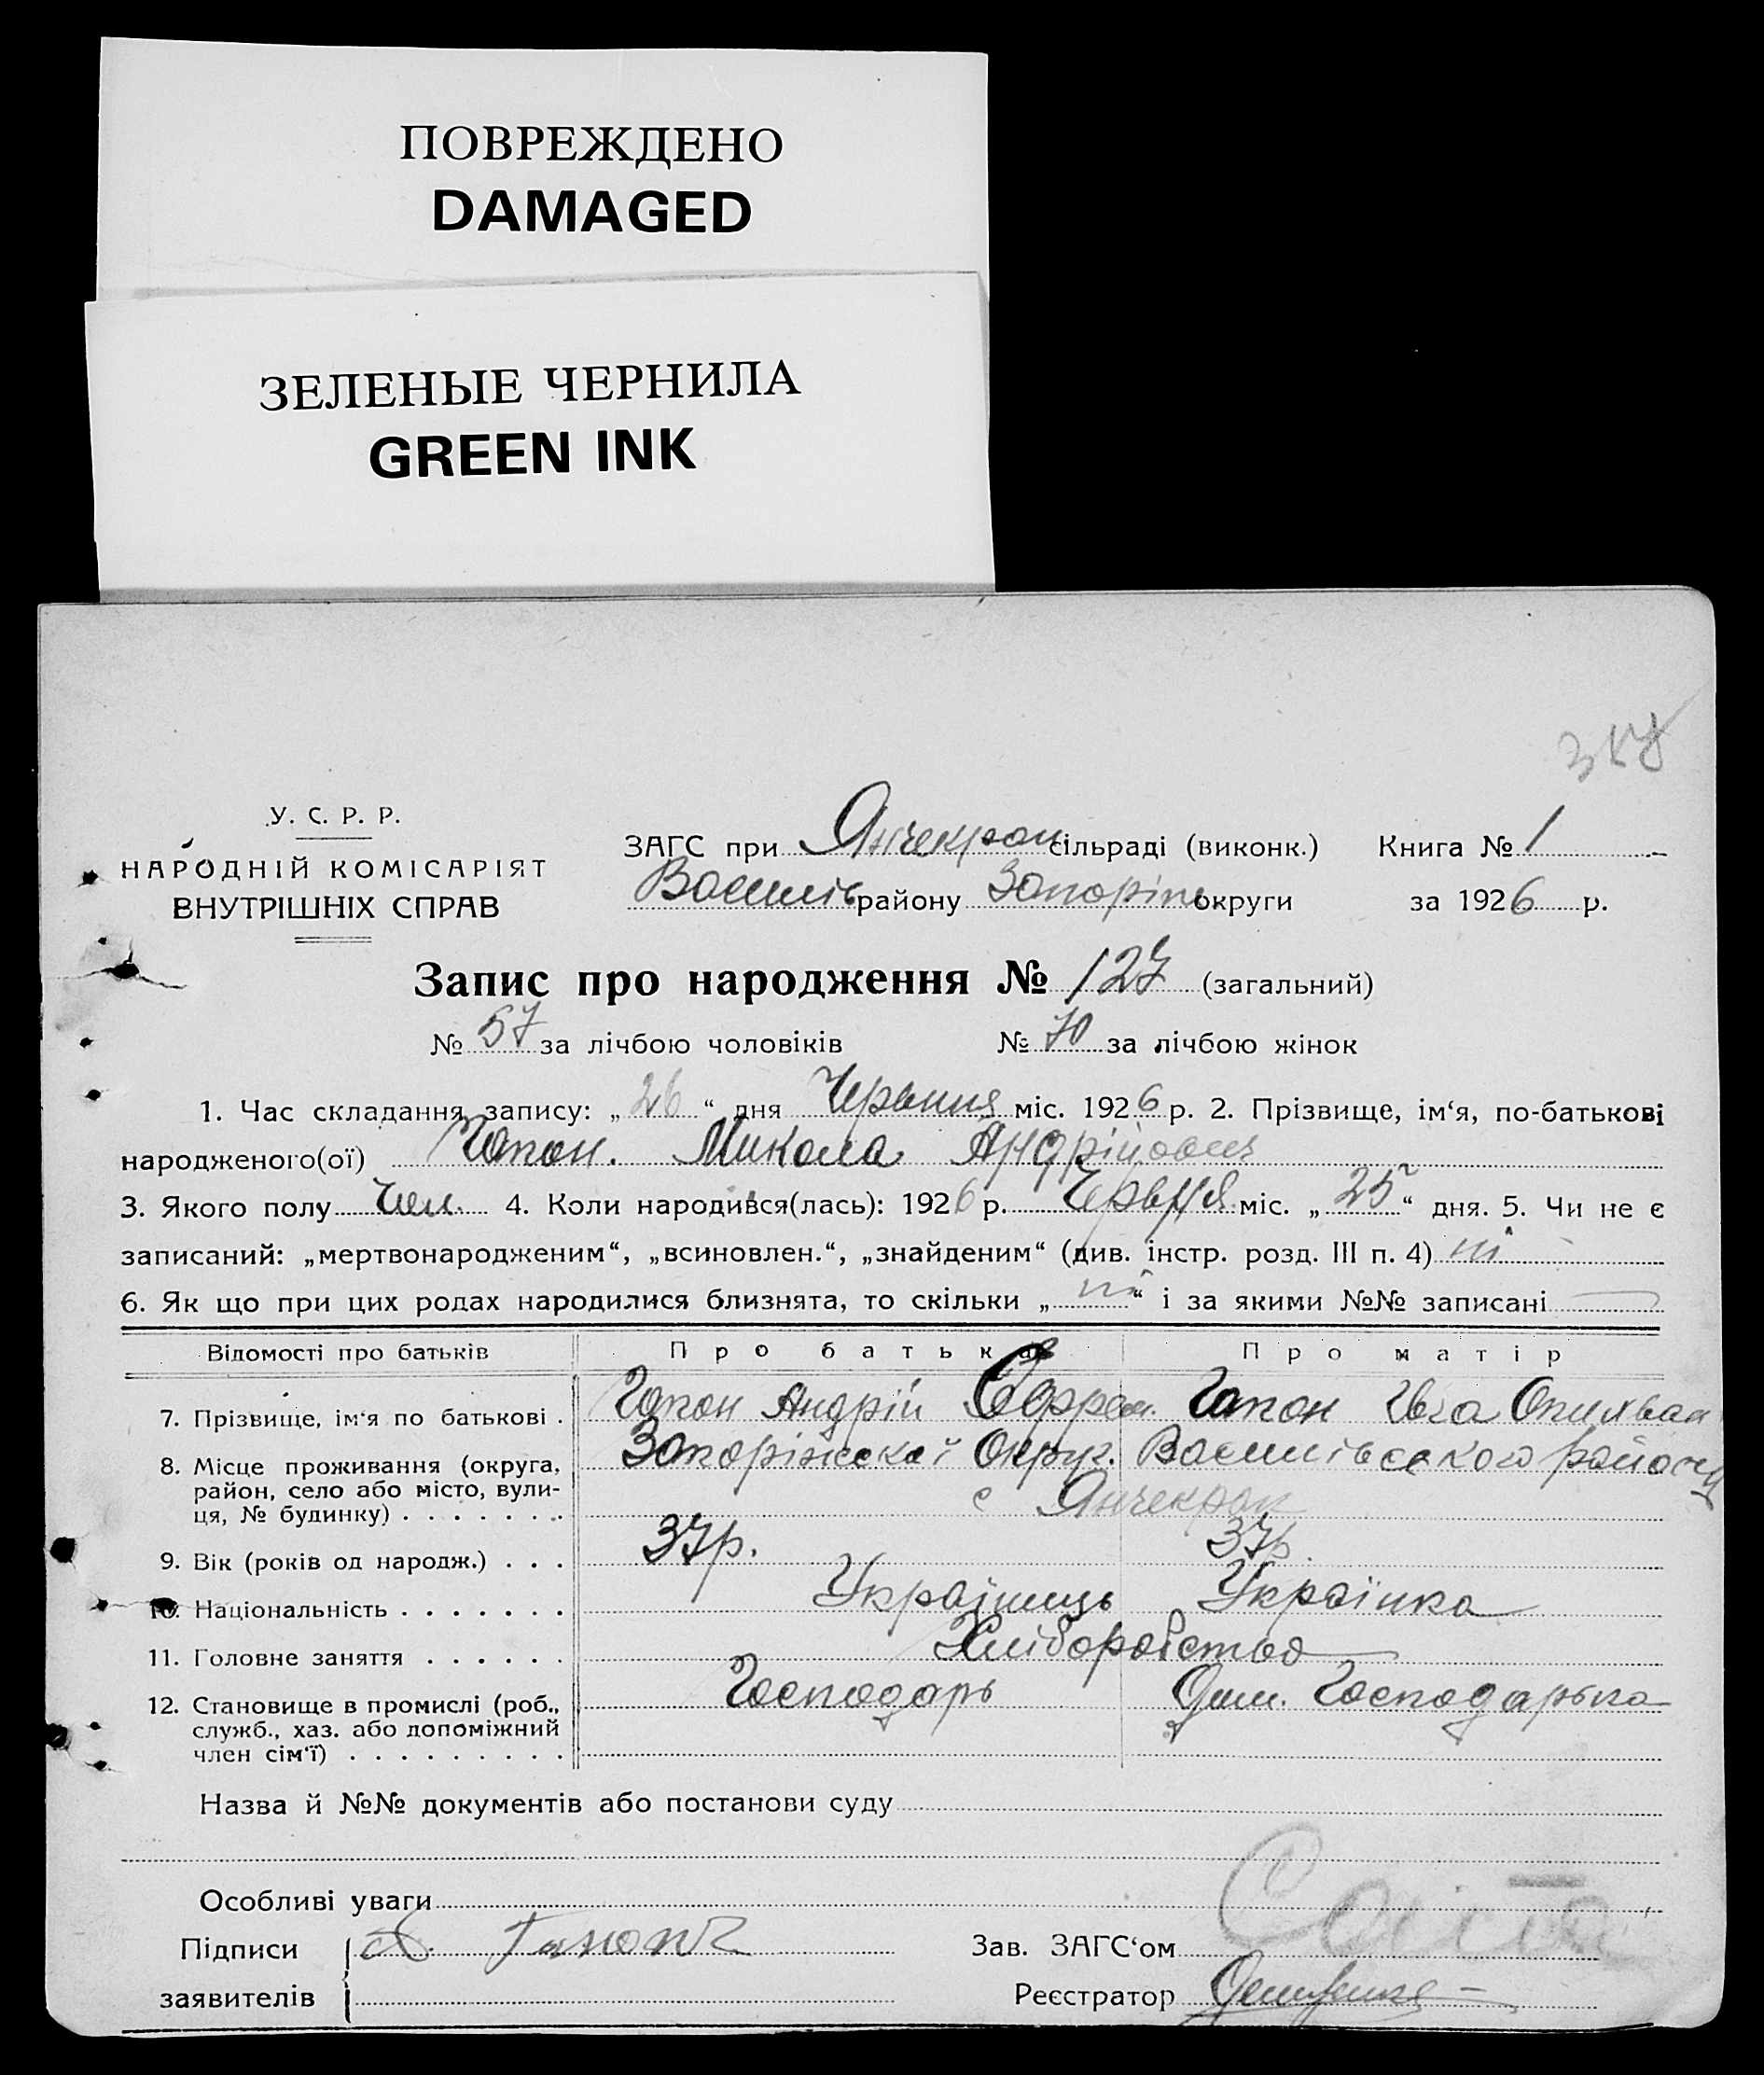 ПОВРЕЖДЕНО
DAMAGED
ЗЕЛЕНЫЕ ЧЕРНИЛА
GREEN INK
У. С. Р. Р.
НАРОДНІЙ КОМІСАРІЯТ
ВНУТРІШНІХ СПРАВ
ЗАГС при Янчекрак сільраді (виконк.) Книга № 1
Василів району Запоріж. округи за 1926 р.
Запис про народження № 127 (загальний)
№ 57 за лічбою чоловіків № 70 за лічбою жінок
1. Час складання запису: „ 26 “ дня Червння міс. 1926 р. 2. Прізвище, ім‘я, по-батькові
народженого(ої) Гапон. Микола Андрійович
3. Якого полу Чол. 4. Коли народився(лась): 1926 р. Червня міс. „ 25 “ дня. 5. Чи не є
записаний: „мертвонародженим“, „всиновлен.“, „знайденим“ (див. інстр. розд. III п. 4) ні
6. Як що при цих родах народилися близнята, то скільки „ ні “ і за якими №№ записані —
Відомості про батьків Про батька Про матір
7. Прізвище, ім‘я по батькові . Гапон Андрій Єфрем. Гапон Ївга
8. Місце проживання (округа, район, село або місто, вулиця, № будинку) . . . . . . . Запоріжської Округ. Василівського району
с Янчекрак
9. Вік (років од народж.) . . . 37р. 37р.
10. Національність . . . . . . . Українець Українка
11. Головне заняття . . . . . . Хліборобство
12. Становище в промислі (роб., служб., хаз. або допоміжний член сім‘ї) . . . . . . . . . Господарь Дом. Господарька
Назва й №№ документів або постанови суду
Особливі уваги
Підписи
заявителів
А. Гапон
Зав. ЗАГС‘ом
Реєстратор